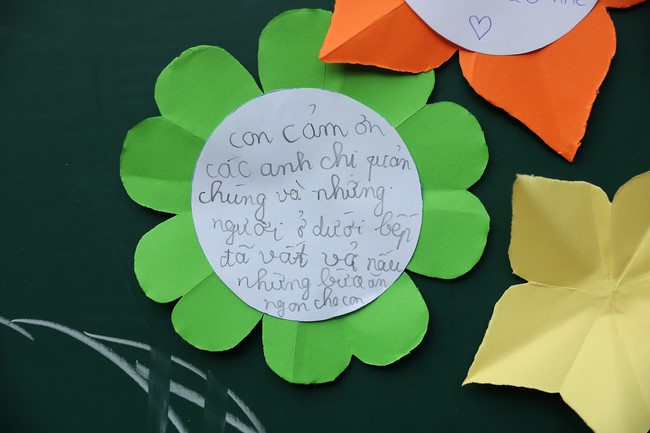 con cảm ơn
các anh chị quản
chúng và những
người ở dưới bếp
đã vất vả nấu
những bữa ăn
ngon cho con